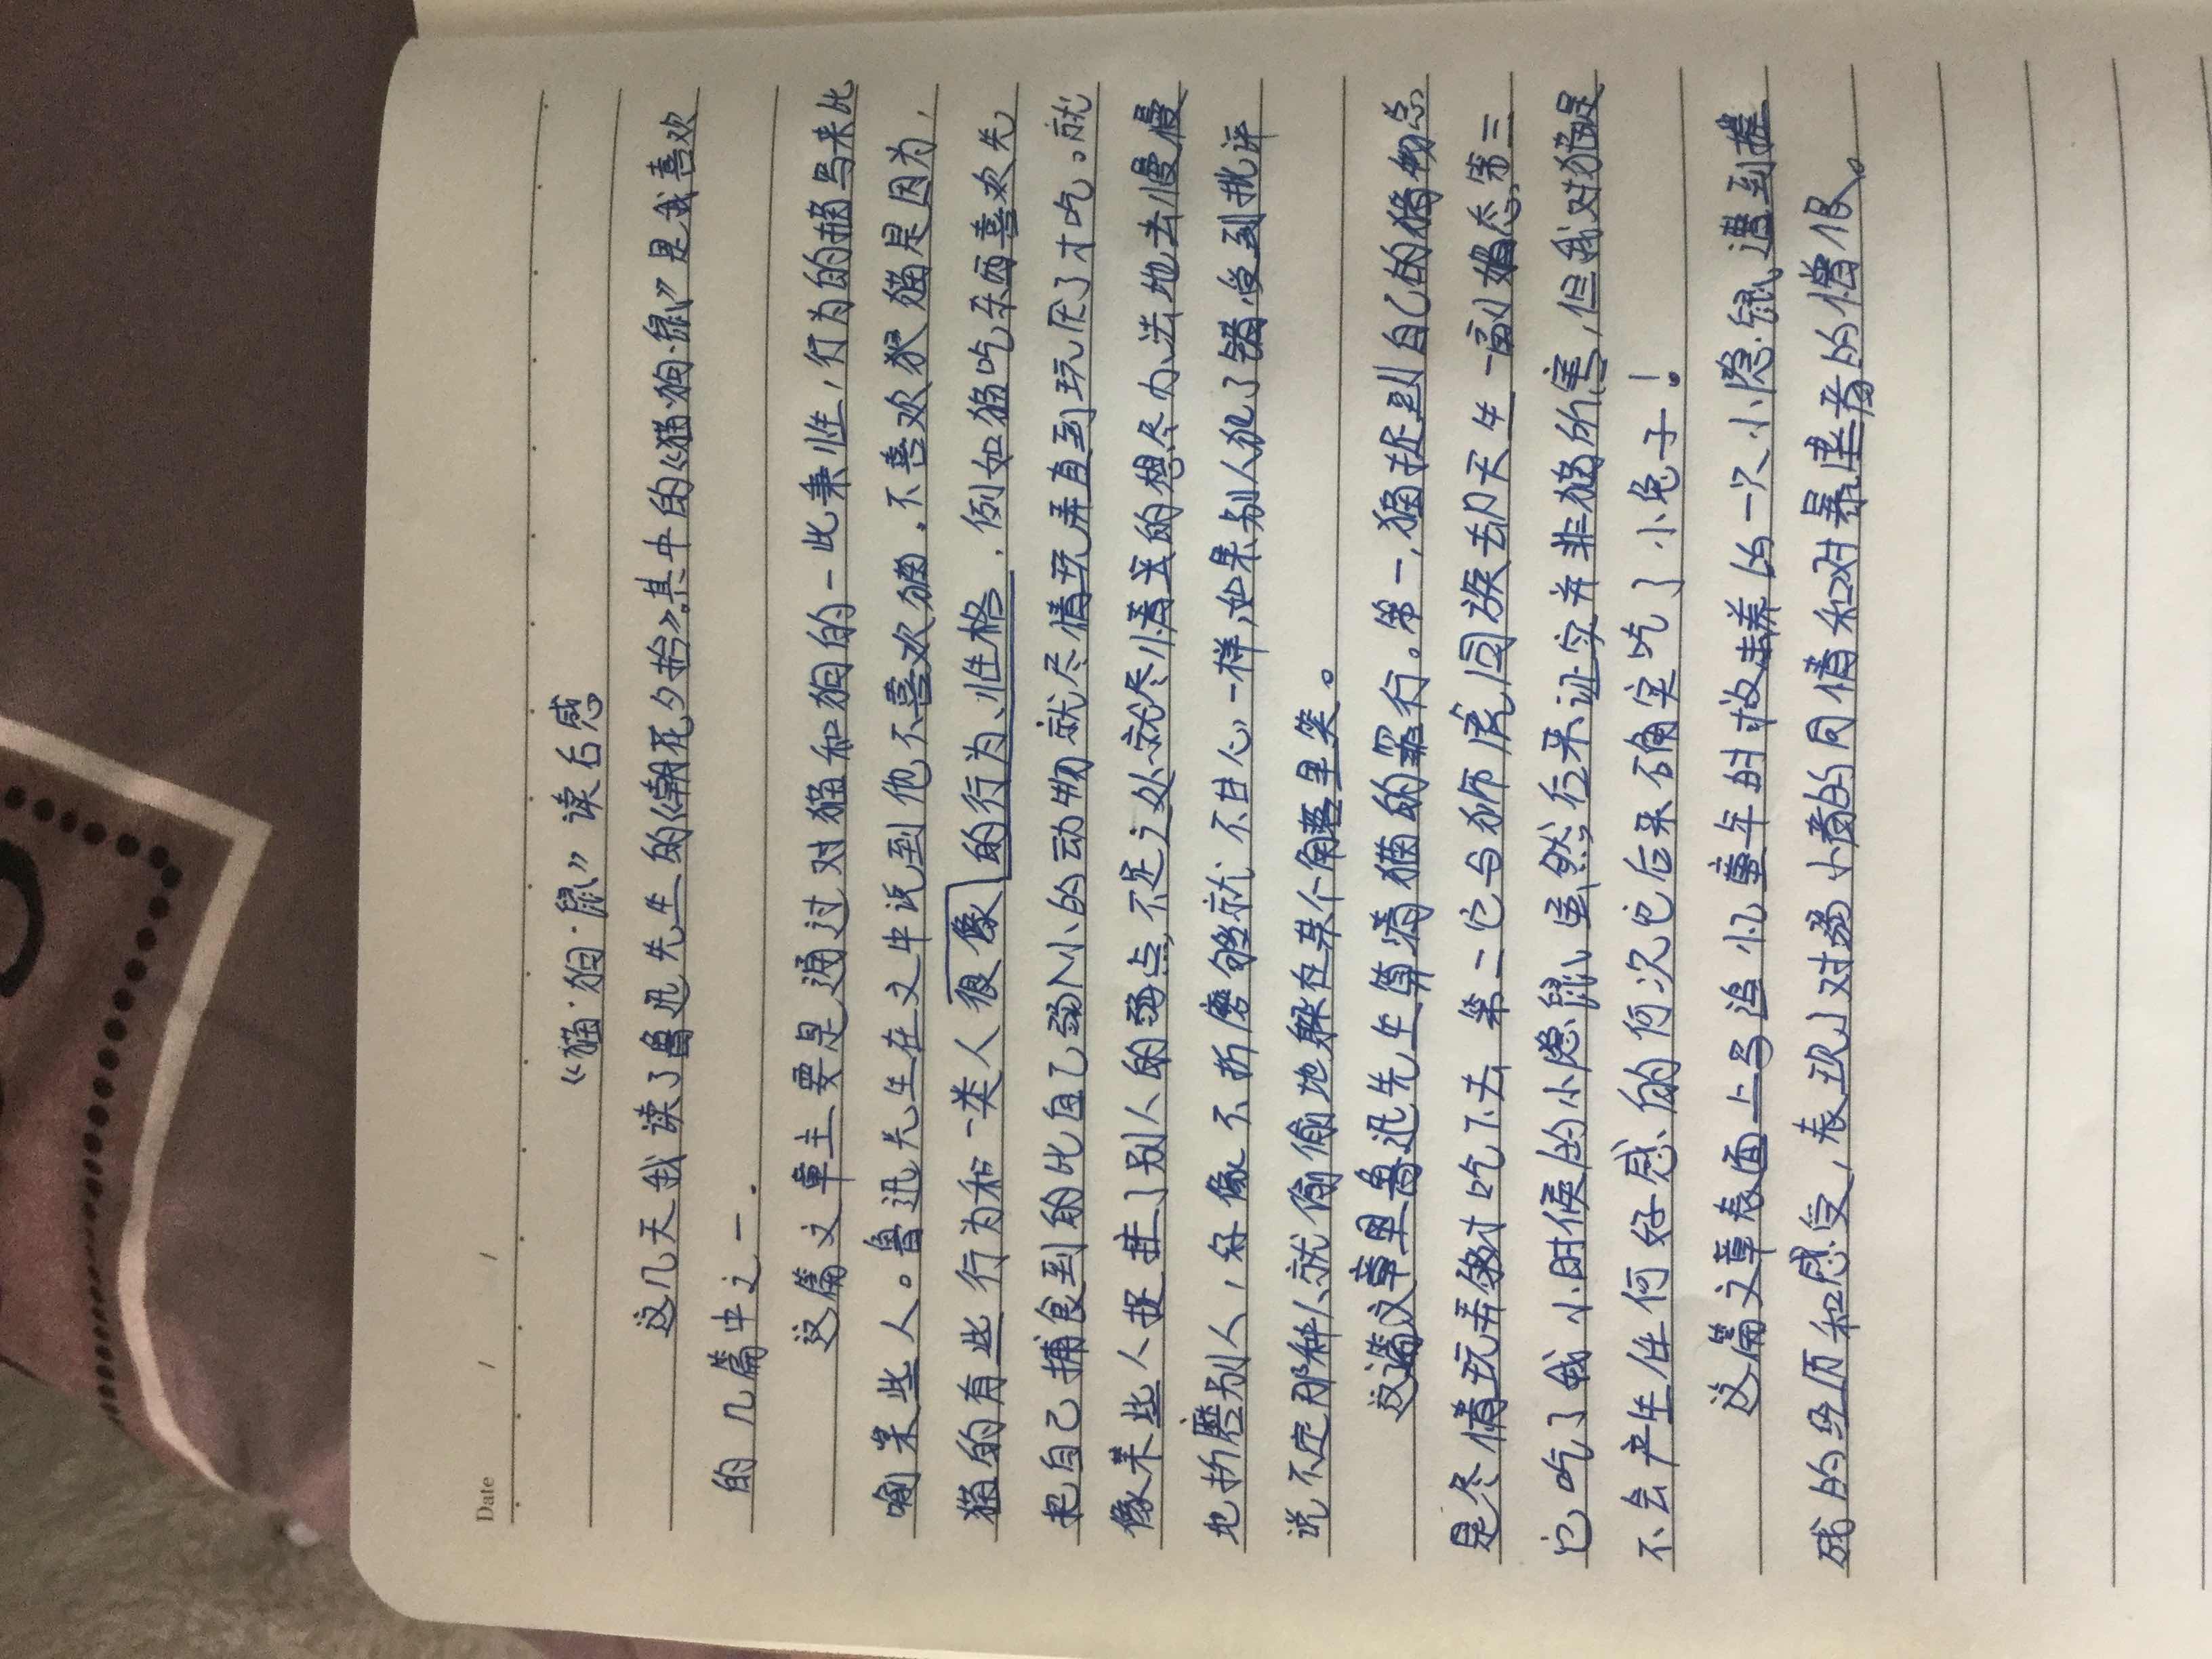 Date / /
《猫·狗·鼠》读后感
这几天我读了鲁迅先生的《朝花夕拾》,其中的《猫·狗·鼠》是我喜欢
的几篇中之一.
这篇文章主要是通过对猫和狗的一此秉性,行为的描写来比
喻某些人。鲁迅先生在文中说到他不喜欢猫.不喜欢猫是因为,
猫的有些行为和一类人很像的行为、性格.例如猫吃东西喜欢先
把自己捕食到的比自己弱小的动物就尽情玩弄直到玩厌了才吃。就
像某些人捉住了别人的弱点,不足之处就尽情去的想尽办法地去慢慢
地折磨别人,好像不折磨够就不甘心一样,如果别人犯了错,受到批评
说不定那种人就偷偷地躲在某个角落里笑。
这篇文章里鲁迅先生算清猫的罪行。第一,猫捉到自己的猎物总
是尽情玩弄够才吃下去,第二它与狮虎同族却天生一副媚态,第三
它吃了我小时候的小隐鼠,虽然后来证实并非猫所害,但我对猫是
不会产生任何好感的何况它后来确实吃了小兔子!
这篇文章表面上写追忆童年时救养的一只小隐鼠,遭到摧
残的经历和感受,表现了对弱小者的同情和对暴虐者的憎恨。